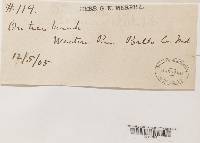 HERB. G. K. MERRILL
#119.
On tree trunk
Western Run Balto. Co. Md
12/5/05